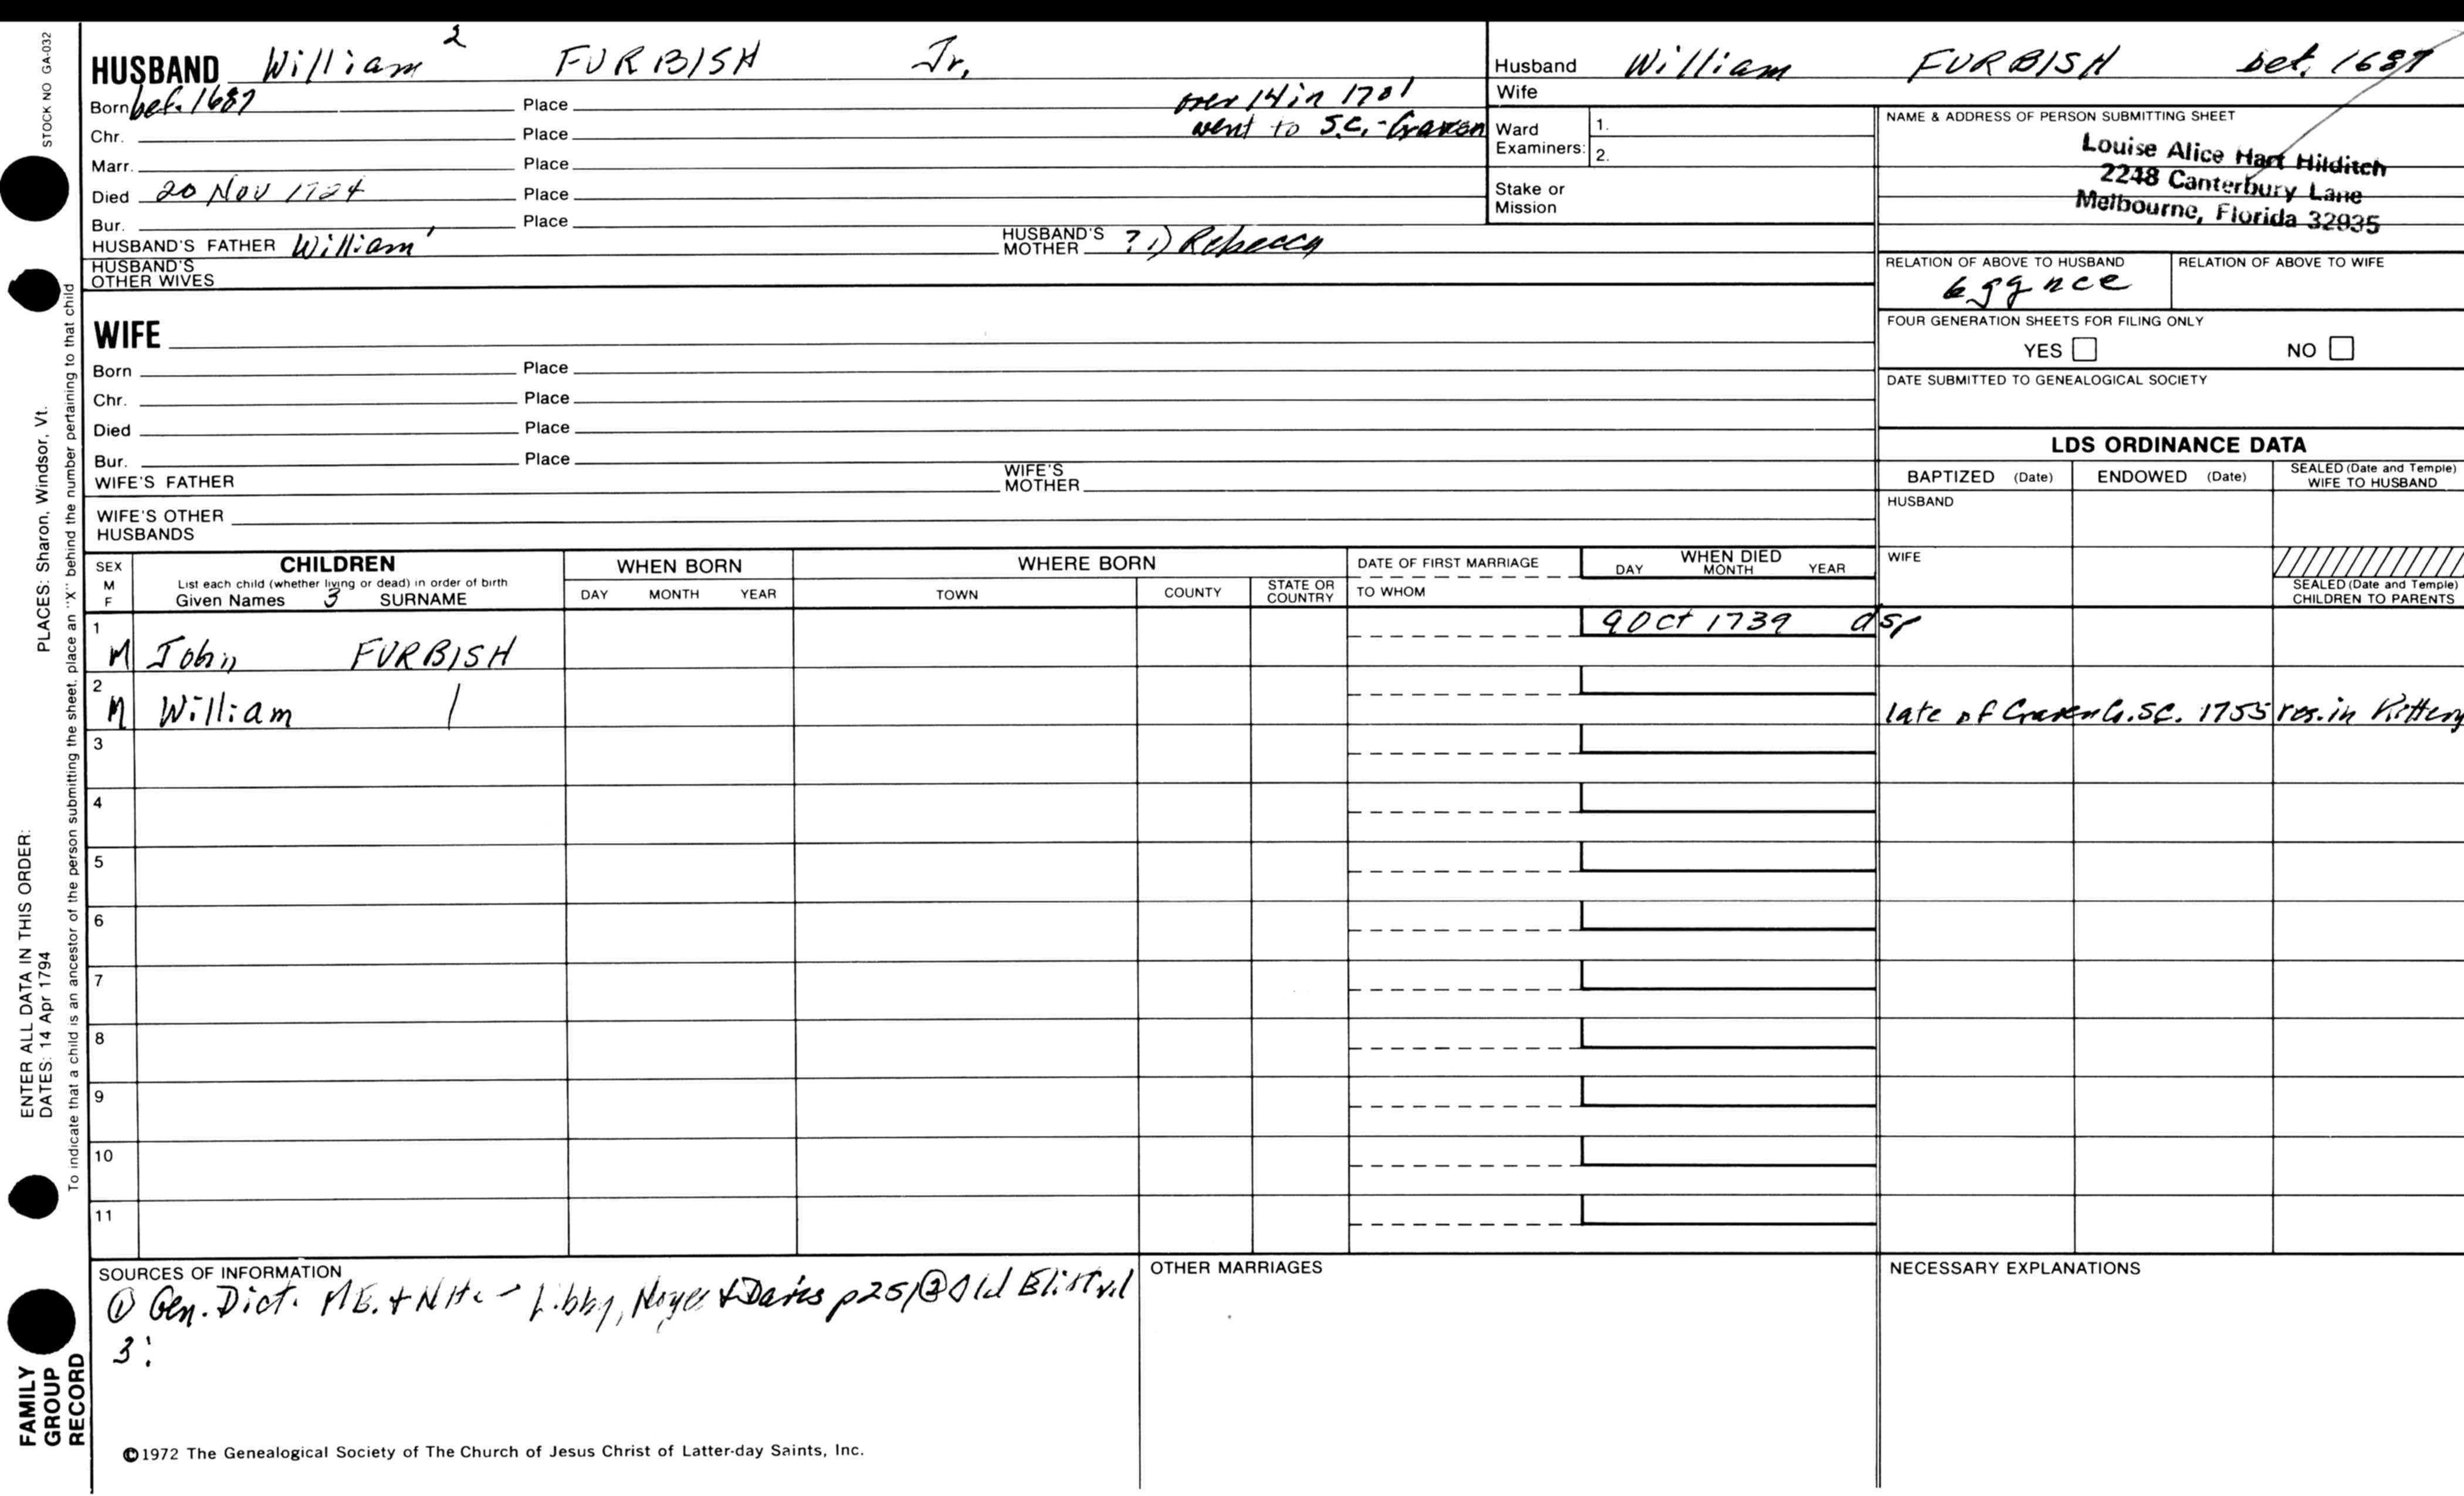 STOCK NO GA-032
HUSBAND William 2 FURBISH Jr.
Born bef. 1687 Place over 14 in 1701
Chr. Place went to S.C. - Craven
Marr. Place
Died 20 Nov 1724 Place
Bur. Place
HUSBAND'S FATHER William 1 HUSBAND'S MOTHER ? 1) Rebecca
HUSBAND'S OTHER WIVES
Husband William FURBISH bef. 1687
Wife
Ward Examiners: 1.
2.
Stake or Mission
NAME & ADDRESS OF PERSON SUBMITTING SHEET
Louise Alice Hart Hilditch
2248 Canterbury Lane
Melbourne, Florida 32935
RELATION OF ABOVE TO HUSBAND RELATION OF ABOVE TO WIFE
6 gg nce
FOUR GENERATION SHEETS FOR FILING ONLY
YES NO
DATE SUBMITTED TO GENEALOGICAL SOCIETY
WIFE
Born Place
Chr. Place
Died Place
Bur. Place
WIFE'S FATHER WIFE'S MOTHER
WIFE'S OTHER HUSBANDS
LDS ORDINANCE DATA
BAPTIZED (Date) ENDOWED (Date) SEALED (Date and Temple) WIFE TO HUSBAND
HUSBAND
WIFE
SEALED (Date and Temple) CHILDREN TO PARENTS
SEX M F
CHILDREN
List each child (whether living or dead) in order of birth
Given Names 3 SURNAME
WHEN BORN
DAY MONTH YEAR
WHERE BORN
TOWN COUNTY STATE OR COUNTRY
DATE OF FIRST MARRIAGE
TO WHOM
WHEN DIED
DAY MONTH YEAR
1 M John FURBISH 9 Oct 1739 dsp
2 M William late of Craven Co. SC. 1755 res. in Kittery
3
4
5
6
7
8
9
10
11
SOURCES OF INFORMATION
① Gen. Dict. ME. + NH. - Libby, Noyes + Davis p 251 ② Old Eliot vol
3:
OTHER MARRIAGES
NECESSARY EXPLANATIONS
©1972 The Genealogical Society of The Church of Jesus Christ of Latter-day Saints, Inc.
FAMILY GROUP RECORD
ENTER ALL DATA IN THIS ORDER:
DATES: 14 Apr 1794 PLACES: Sharon, Windsor, Vt.
To indicate that a child is an ancestor of the person submitting the sheet, place an "X" behind the number pertaining to that child